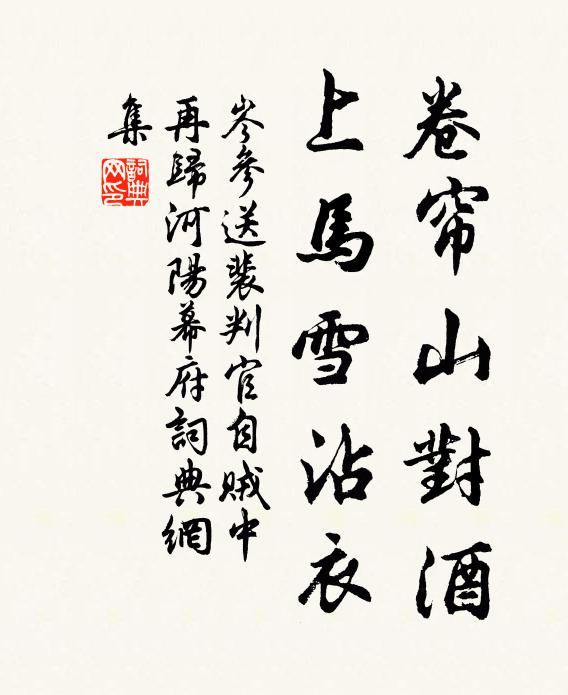 卷帘山對酒
上馬雪沾衣
岑參送裴判官自賊中
再歸河陽幕府詞典網
集
詞典網印